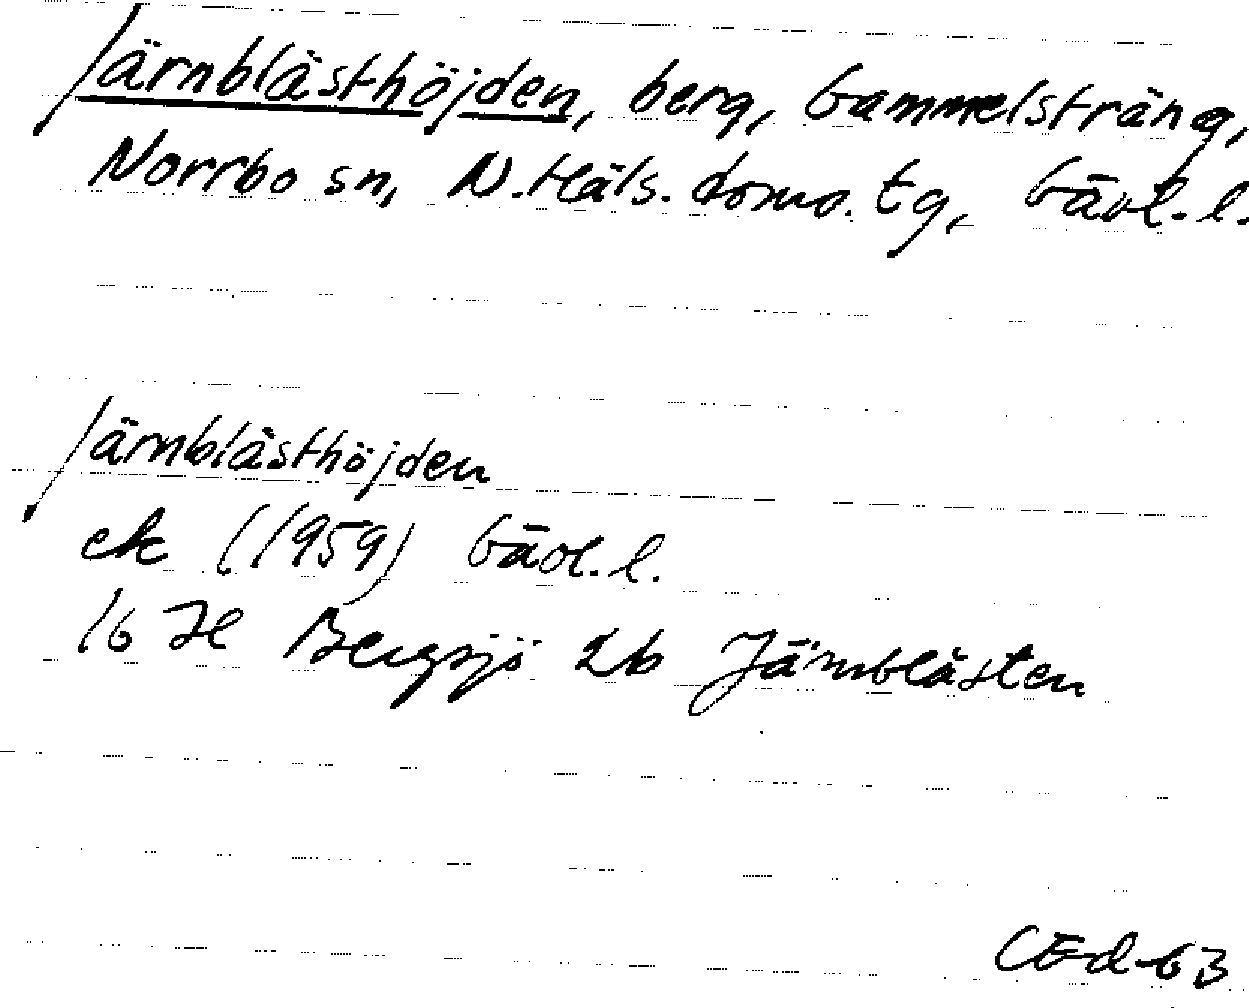 Järnblästhöjden, berg, Gammelsträng,
Norrbo sn, N. Häls. doms. tg, Gävl. l.
Järnblästhöjden
ek (1959) Gävl. l.
16 H Bergsjö 2b Järnblästen
CEd-63